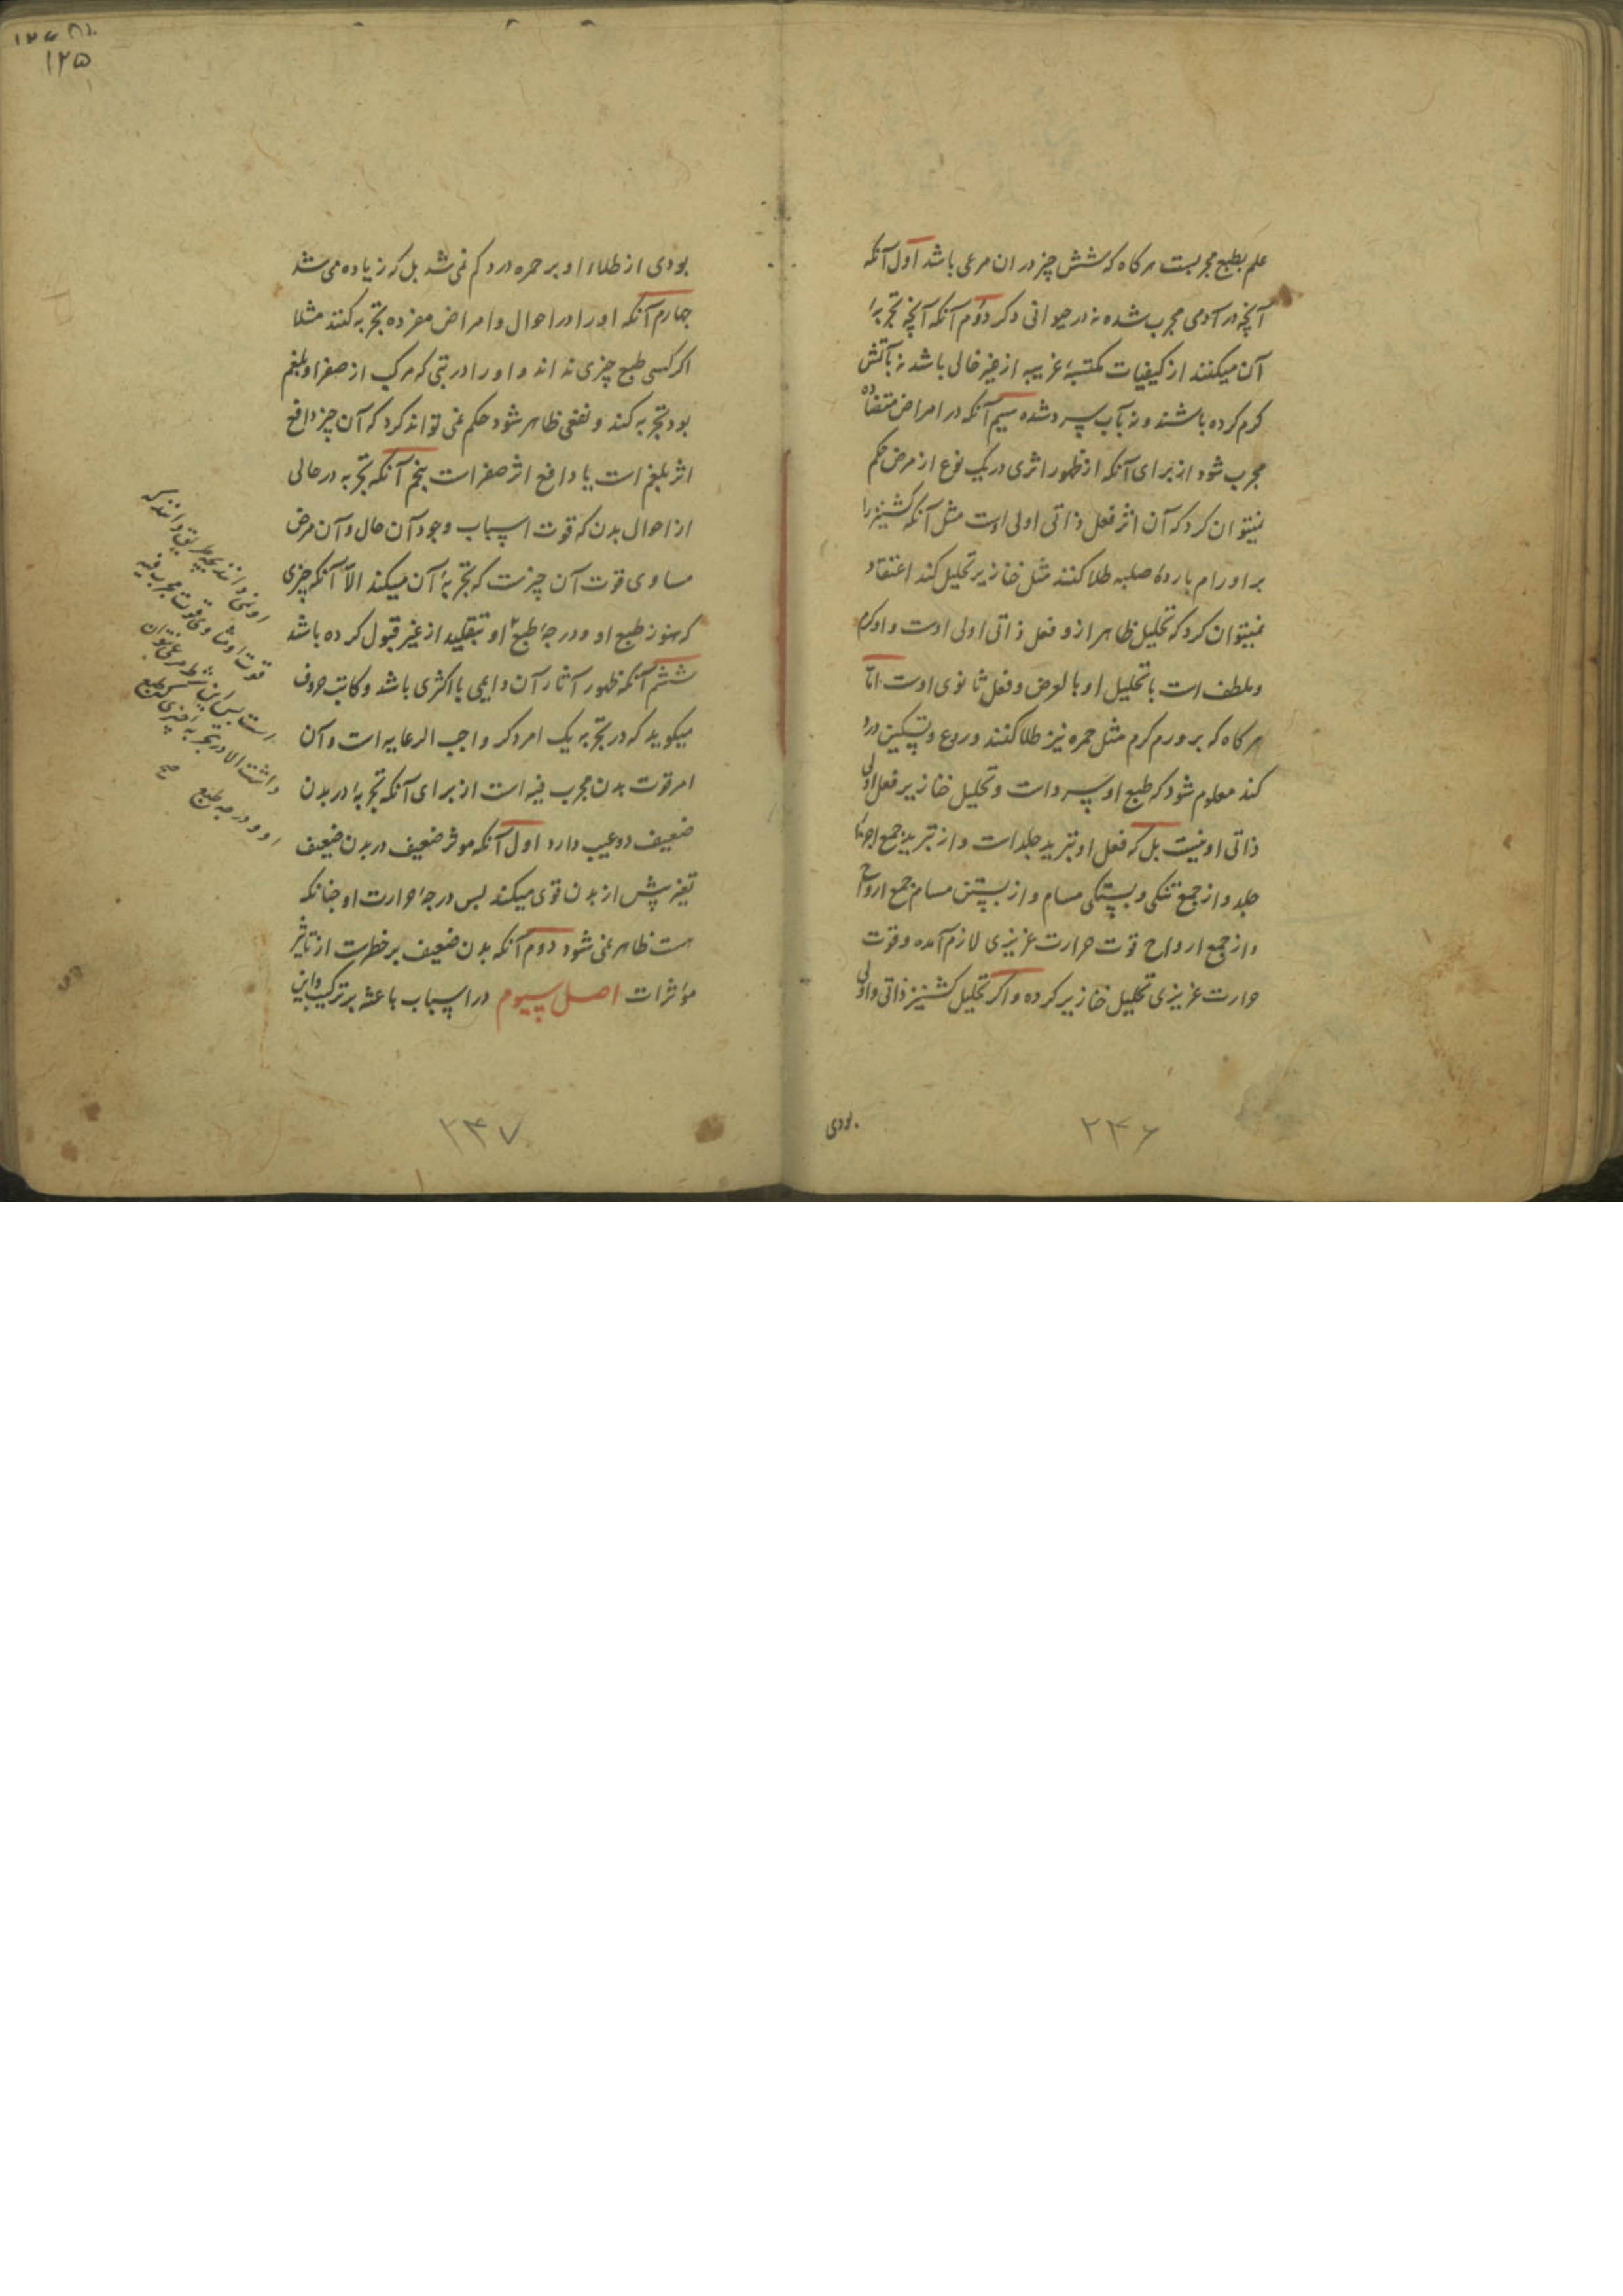 علم بطبع مجربست هرکاه که شش چیز در ان مرعی باشد اول آنکه
آنچه در آدمی مجرب شده نه در حیوانی دکر دوم آنکه آنچه تجربهٔ
آن میکنند از کیفیات مکتسبهٔ غریبه از غیر خالی باشد نه بآتش
کرم کرده باشند و نه بآب سرد شده سیم آنکه در امراض متضاده
مجرب شود از برای آنکه از ظهور اثری در یک نوع از مرض حکم
نمیتوان کرد که آن اثر فعل ذاتی اولی اوست مثل آنکه کشنیز را
بر اورام باردهٔ صلبه طلا کنند مثل خنازیر تحلیل کند اعتقاد
نمیتوان کرد که تحلیل ظاهر ازو فعل ذاتی اولی اوست و او کرم
و ملطف است یا تحلیل او بالعرض و فعل ثانوی اوست اما
هرکاه که بر ورم کرم مثل حمره نیز طلا کنند و ردع و تسکین درد
کند معلوم شود که طبع او سرد است و تحلیل خنازیر فعل اولی
ذاتی او نیست بل که فعل او تبرید جلد است و از تبرید جمع اجزا
جلد و از جمع تنکی و بستکی مسام و از بستن مسام جمع ارواح
و از جمع ارواح قوت حرارت غریزی لازم آمده و قوت
حرارت غریزی تحلیل خنازیر کرده و اکر تحلیل کشنیز ذاتی و اولی
بودی
۲۴۶
۱۲۵
بودی از طلاء او بر حمره درد کم نمی شد بل که زیاده می شد
چهارم آنکه او را در احوال و امراض مفرده تجربه کنند مثلا
اکر کسی طبع چیزی نداند و او را در تبی که مرکب از صفرا و بلغم
بود تجربه کند و نفعی ظاهر شود حکم نمی تواند کرد که آن چیز دافع
اثر بلغم است یا دافع اثر صفراست پنجم آنکه تجربه در حالی
از احوال بدن که قوت اسباب وجود آن حال و آن مرض
مساوی قوت آن چیزست که تجربهٔ آن میکند الا آنکه چیزی
که هنوز طبع او و درجهٔ طبع او بتقلید از غیر قبول کرده باشد
ششم آنکه ظهور آثار آن دایمی یا اکثری باشد و کاتب حروف
میکوید که در تجربه یک امر دکر واجب الرعایه است و آن
امر قوت بدن مجرب فیه است از برای آنکه تجربهٔ در بدن
ضعیف دو عیب دارد اول آنکه موثر ضعیف در بدن ضعیف
تغیر پیش از بدن قوی میکند بس درجهٔ حرارت او چنانکه
هست ظاهر نمی شود دوم آنکه بدن ضعیف بر خطرست از تاثیر
مؤثرات اصل سیوم در اسباب باعثه بر ترکیب و این
او نمی دانند بچه طریق دانند که
قوت او مساوی قوت مجرب فیه
است بس این شرط مرعی نتوان
داشت الا در تجربه چیزی که طبع
او و درجه طبع
صح
۲۴۷